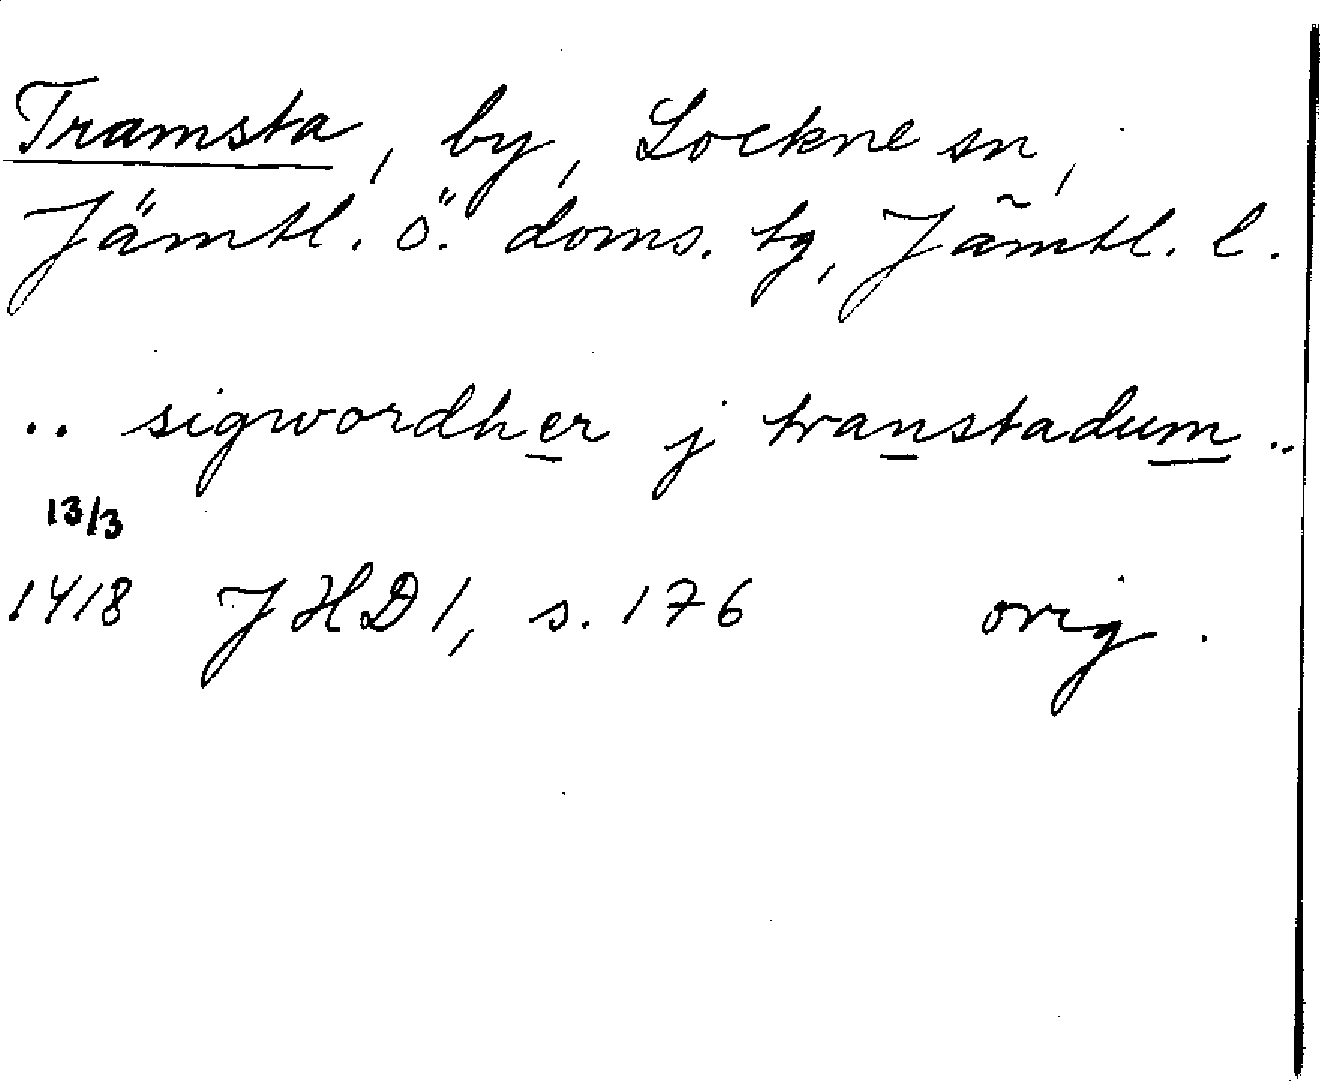 Tramsta, by, Lockne sn,
Jämtl. ö. doms. tg, Jämtl. l.
.. sigwordher j transtadum ..
13/3
1418 JHD 1, s. 176 orig.